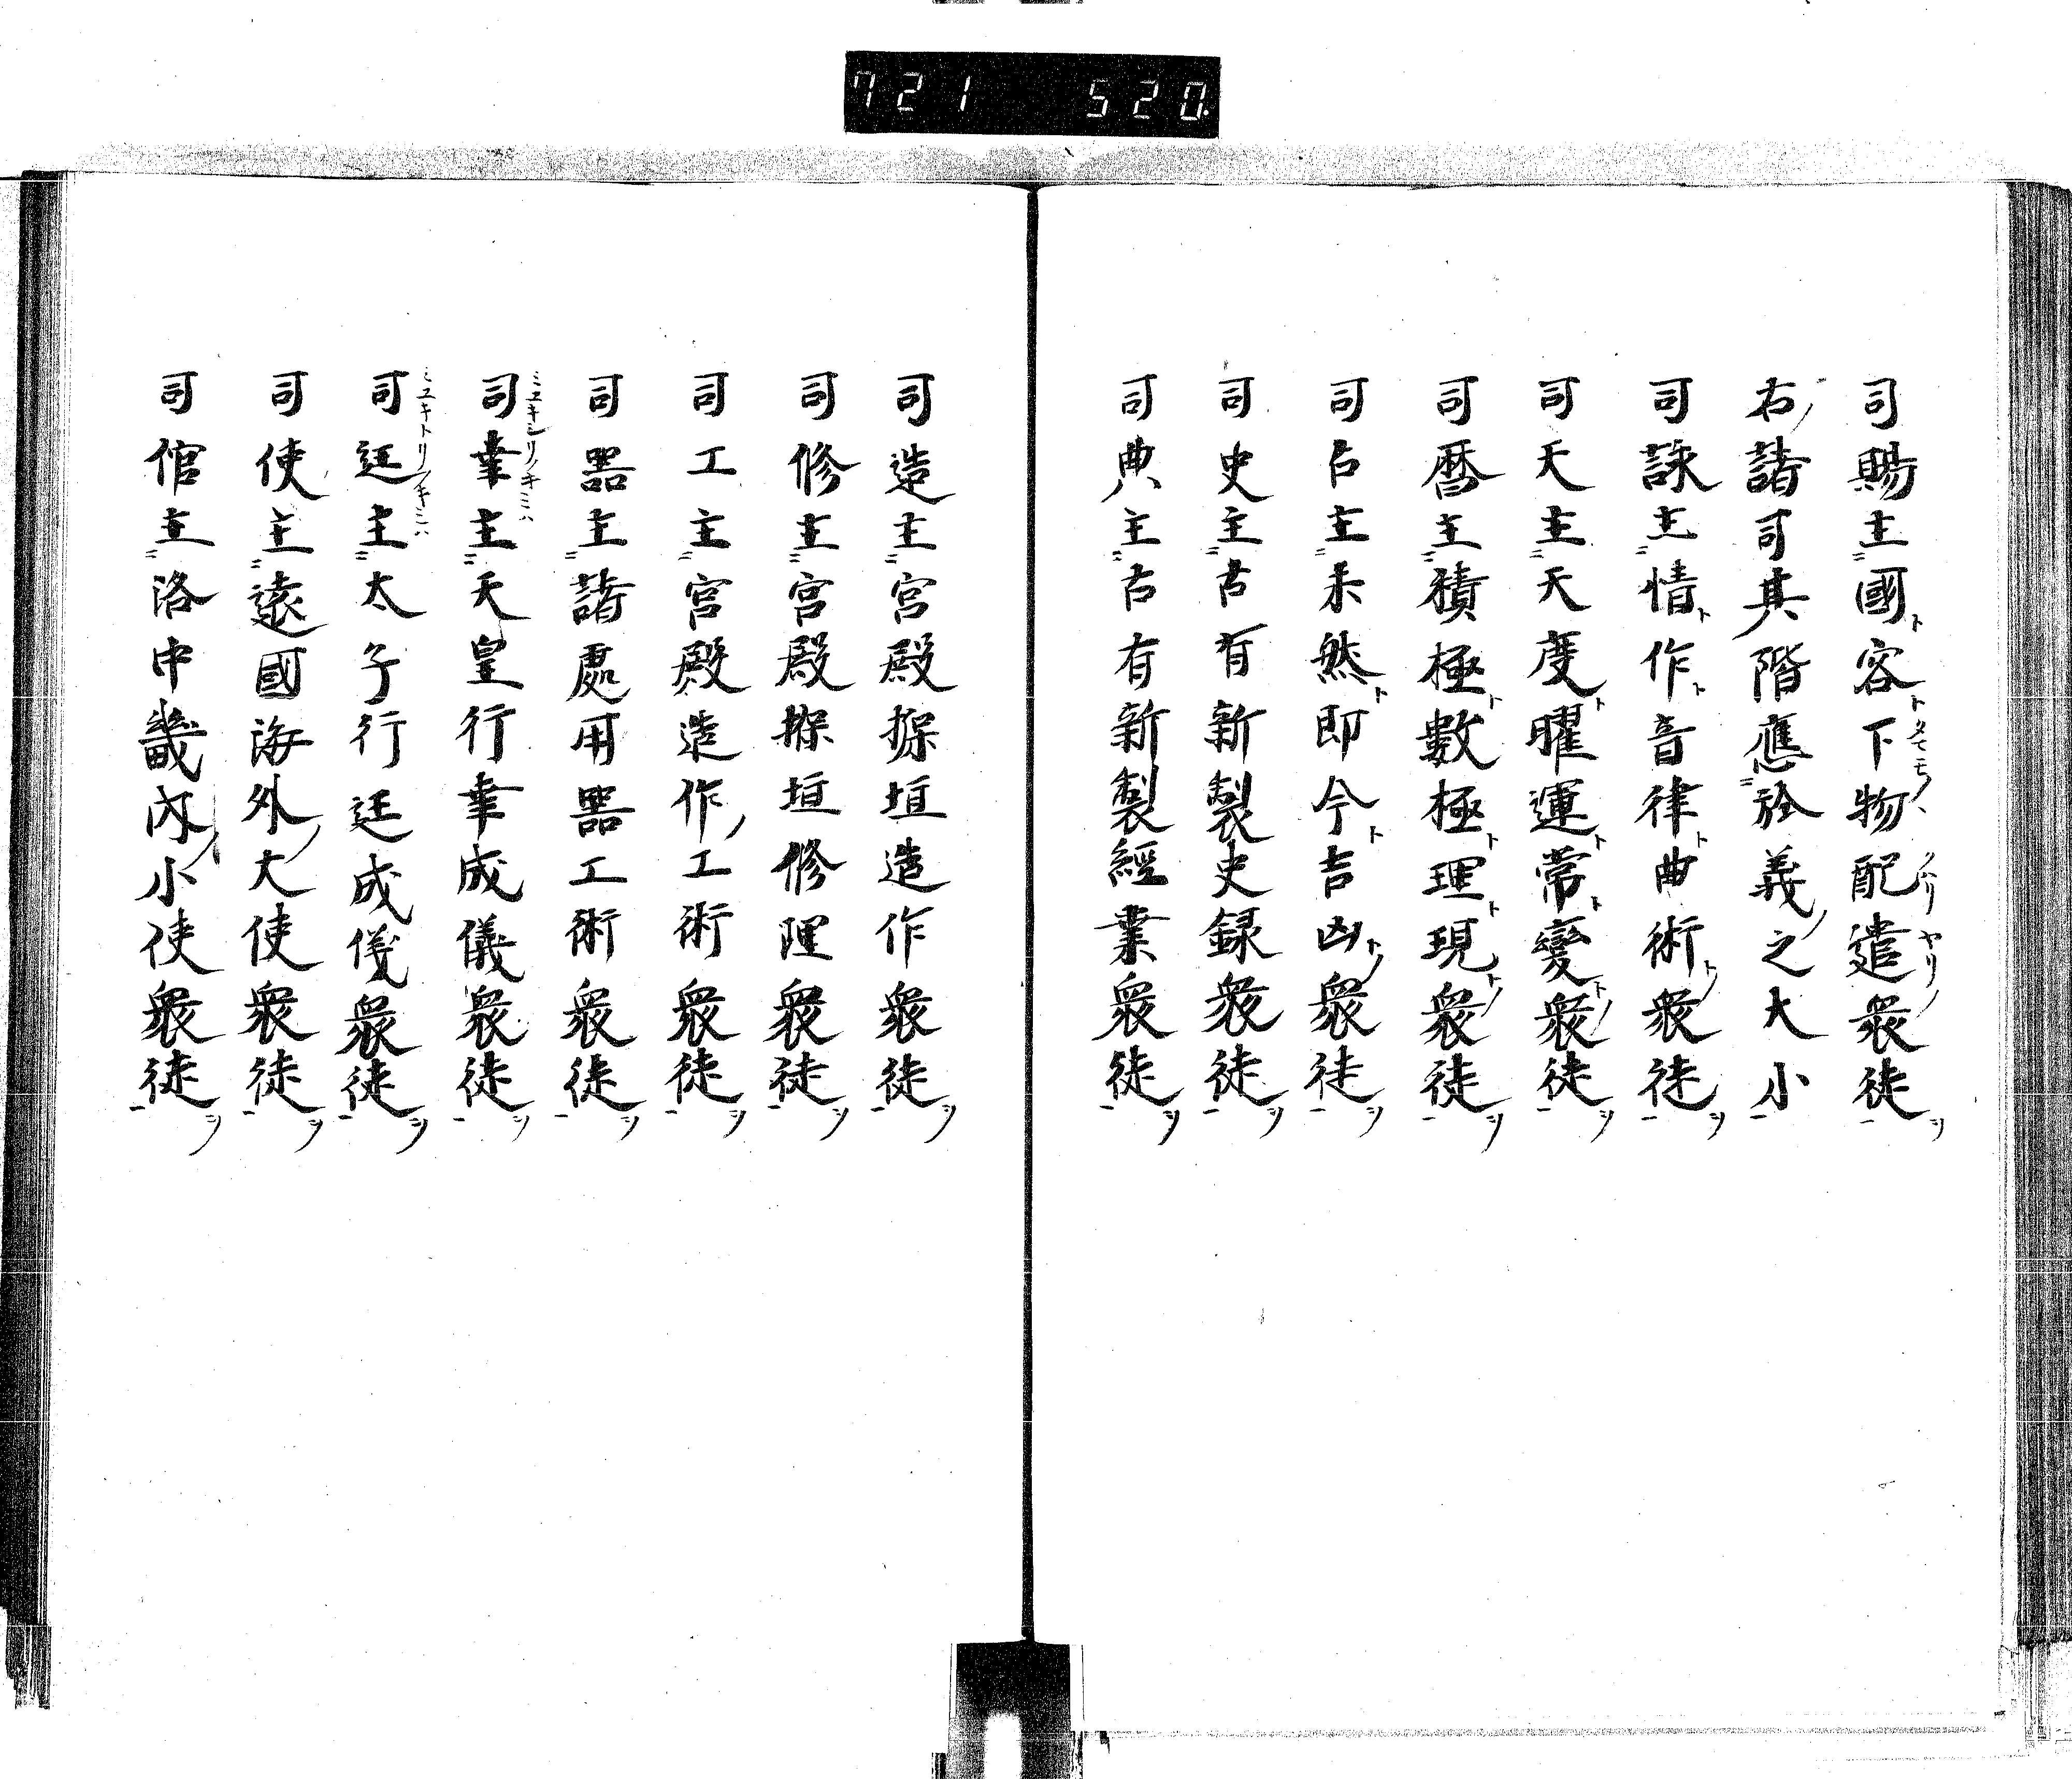 721 520
司賜主國容下物配遣衆徒
右諸司其階應於義之大小
司詠主情作音律曲術衆徒
司天主天度曜運常變衆徒
司暦主積極數極理現衆徒
司占主未然即今吉凶衆徒
司史主古有新製史録衆徒
司典主古有新製經業衆徒
司造主宮殿探垣造作衆徒
司修主宮殿探垣修理衆徒
司工主宮殿造作工術衆徒
司器主諸處用器工術衆徒
司幸主天皇行幸成儀衆徒
司廷主太子行廷成儀衆徒
司使主遠國海外大使衆徒
司倌主洛中畿内小使衆徒